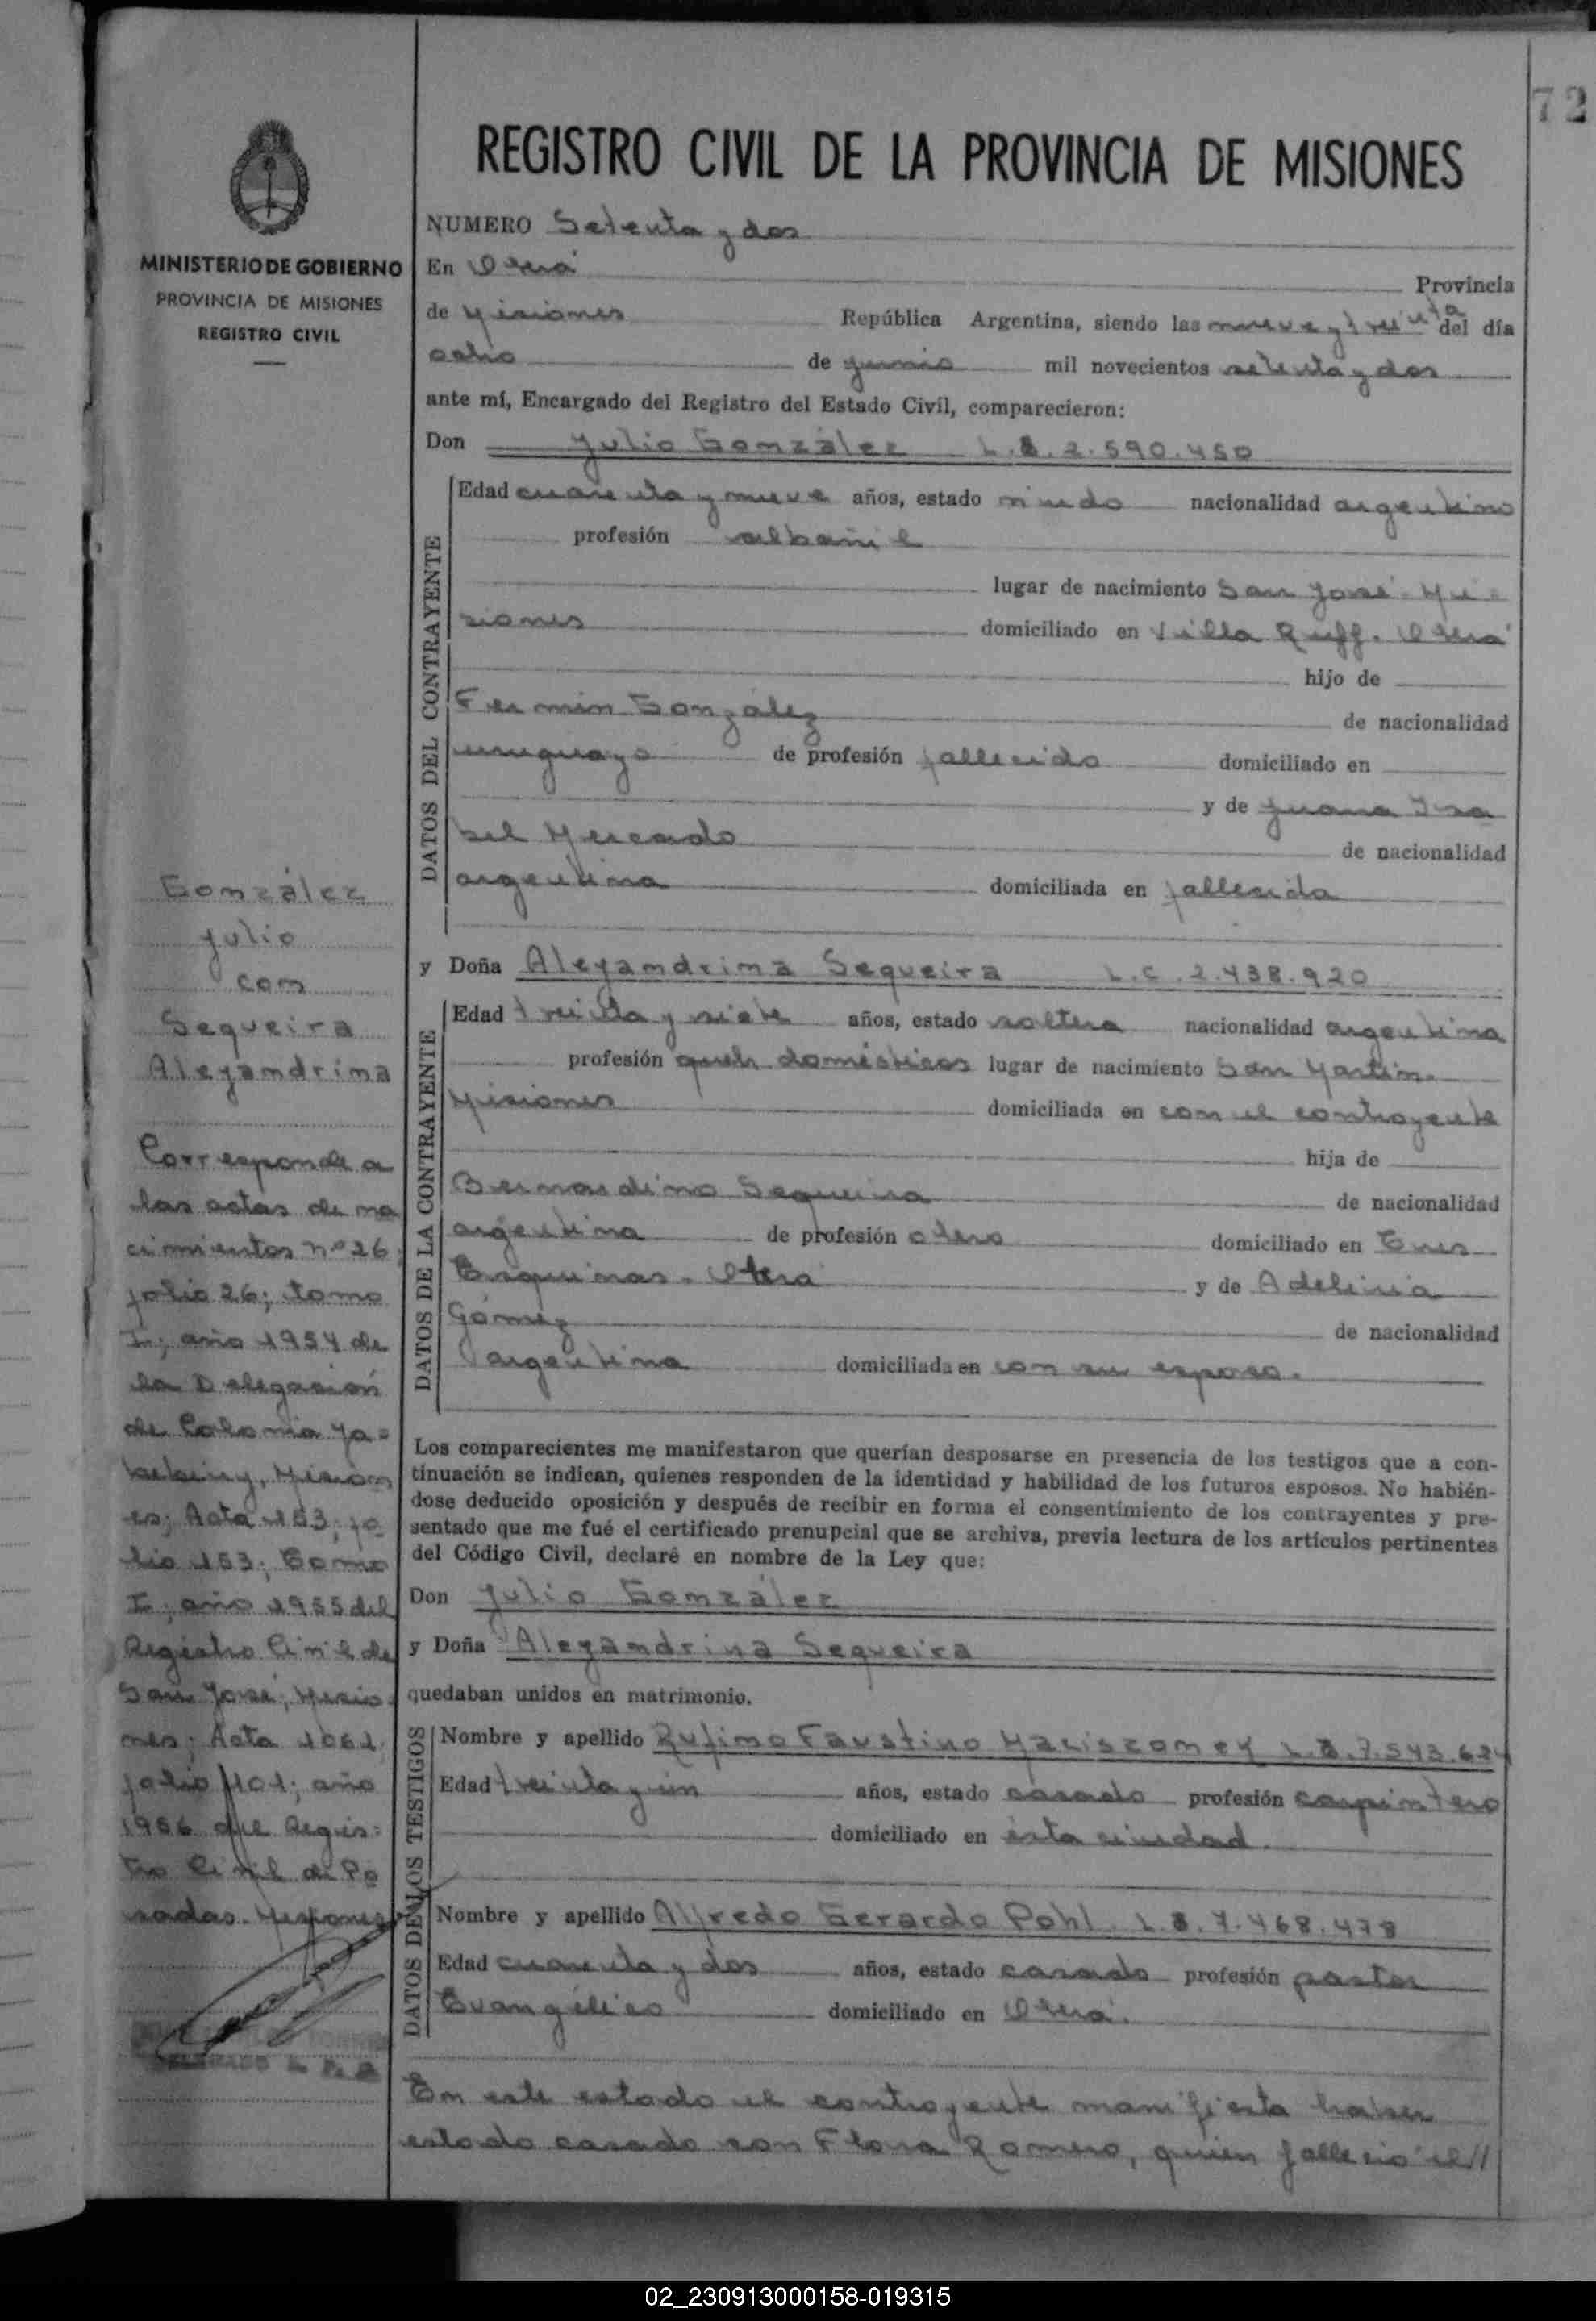 72
REGISTRO CIVIL DE LA PROVINCIA DE MISIONES
MINISTERIO DE GOBIERNO
PROVINCIA DE MISIONES
REGISTRO CIVIL
González
Julio
con
Sequeira
Aleyandrina
Corresponde a
las actas de na
cimientos nº 26
folio 26; tomo
I; año 1954 de
la Delegación
de Colonia Ya=
bebiry, Mision
es; Acta 153; fo
lio 153; Tomo
I; año 1955 del
Registro Civil de
San José, Misio
nes; Acta 1062
folio 101; año
1956 del Regis=
tro Civil de Po
sadas. Misiones
NUMERO Setenta y dos
En Oberá Provincia
de Misiones República Argentina, siendo las nueve y treinta del día
ocho de junio mil novecientos setenta y dos
ante mí, Encargado del Registro del Estado Civil, comparecieron:
Don Julio González L.E. 2.590.450
DATOS DEL CONTRAYENTE
Edad cuarenta y nueve años, estado viudo nacionalidad argentino
profesión albañil
lugar de nacimiento San José - Mi=
siones domiciliado en Villa Ruff. Oberá
hijo de
Fermin González de nacionalidad
uruguayo de profesión fallecido domiciliado en
y de Juana Isa
bel Mercado de nacionalidad
argentina domiciliada en fallecida
y Doña Aleyandrina Sequeira L.C. 2.438.920
DATOS DE LA CONTRAYENTE
Edad treinta y siete años, estado soltera nacionalidad argentina
profesión queh. domésticos lugar de nacimiento San Martín.
Misiones domiciliada en con el contrayente
hija de
Bernardino Sequeira de nacionalidad
argentina de profesión obrero domiciliado en
Esquinas - Oberá y de Adelina
Gómez de nacionalidad
argentina domiciliada en con su esposo.
Los comparecientes me manifestaron que querían desposarse en presencia de los testigos que a con-
tinuación se indican, quienes responden de la identidad y habilidad de los futuros esposos. No habién-
dose deducido oposición y después de recibir en forma el consentimiento de los contrayentes y pre-
sentado que me fué el certificado prenupcial que se archiva, previa lectura de los artículos pertinentes
del Código Civil, declaré en nombre de la Ley que:
Don Julio González
y Doña Aleyandrina Sequeira
quedaban unidos en matrimonio.
DATOS DE LOS TESTIGOS
Nombre y apellido Rufino Faustino L.E. 7.543.624
Edad treinta y un años, estado casado profesión carpintero
domiciliado en ésta ciudad.
Nombre y apellido Alfredo Gerardo Pohl. L.E. 7.468.478
Edad cuarenta y dos años, estado casado profesión pastor
Evangélico domiciliado en Oberá.
En este estado el contrayente manifiesta haber
estado casado con Flora Romero, quién falleció el//
02_230913000158-019315